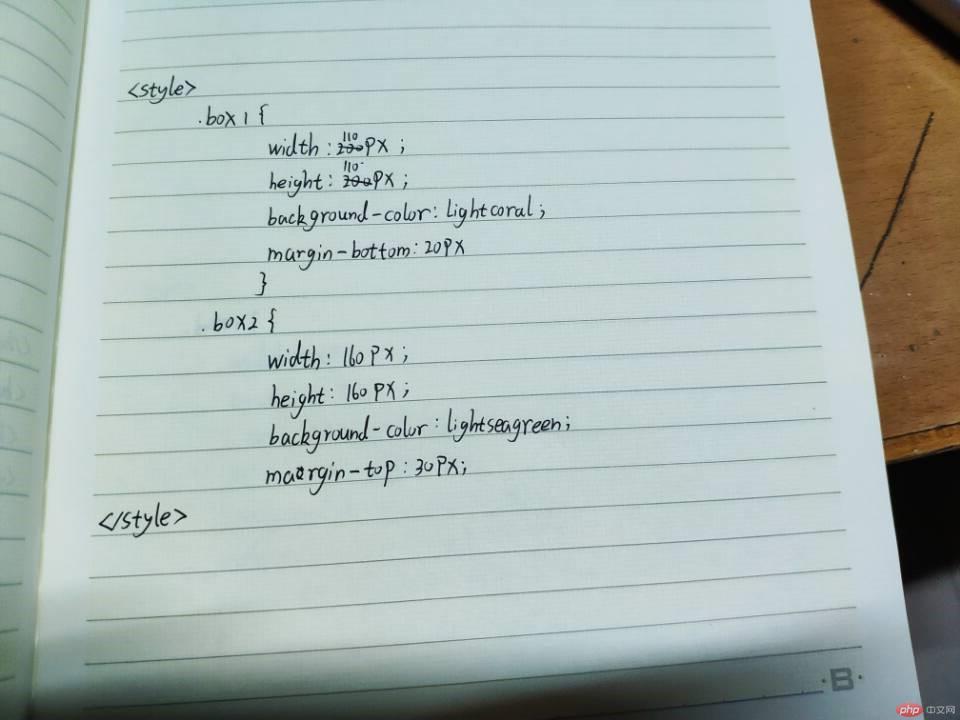 <style>
.box1 {
width: 110px;
height: 110px;
background-color: lightcoral;
margin-bottom: 20px
}
.box2 {
width: 160px;
height: 160px;
background-color: lightseagreen;
maргin-top: 30px;
</style>
B
php 中文网